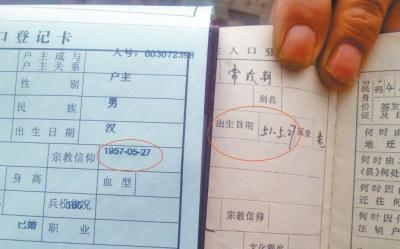 口登记卡
户主或与
户主关系
人号：603072398
户主
性别
男
民族
汉
出生日期
宗教信仰
1957-05-27
身高
血型
兵役状况
已婚
职业
人口登
常
别名
出生日期
51.5.27
属象
兔
宗教信仰
文化程度
居民身份证
签发
何时由
地迁
何时由
(县)何处
何时因
迁往何
何时因
注销户